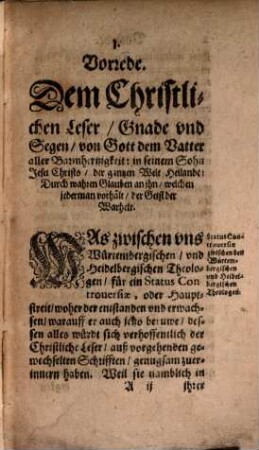 1.
Vorrede.
Dem Christli-
chen Leser / Gnade vnd
Segen / von Gott dem Vatter
aller Barmhertzigkeit: in seinem Sohn
Jesu Christo / der gantzen Welt Heilande:
Durch wahren Glauben an ihn / welchen
jederman vorhält / der Geist der
Warheit.
WAs zwischen vns
Würtembergischen / vnd
Heidelbergischen Theolo-
gen / für ein Status Con
troversiæ, oder Haupt-
streit / woher der entstanden vnd erwach-
sen / warauff er auch jetzo beruwe / des-
sen alles würdt sich verhoffentlich der
Christliche Leser / auß vorgehenden ge-
wechselten Schrifften / genugsam zuer-
innern haben. Weil sie namblich in
A ij ihrer
Status Con-
troversiæ
zwischen den
Würtem-
bergischen
vnd Heidel-
bergischen
Theologen.